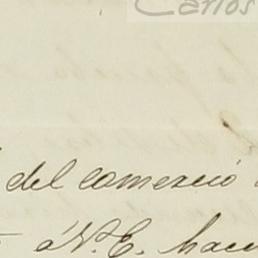 Carlos
del comercio
á V. E. hace